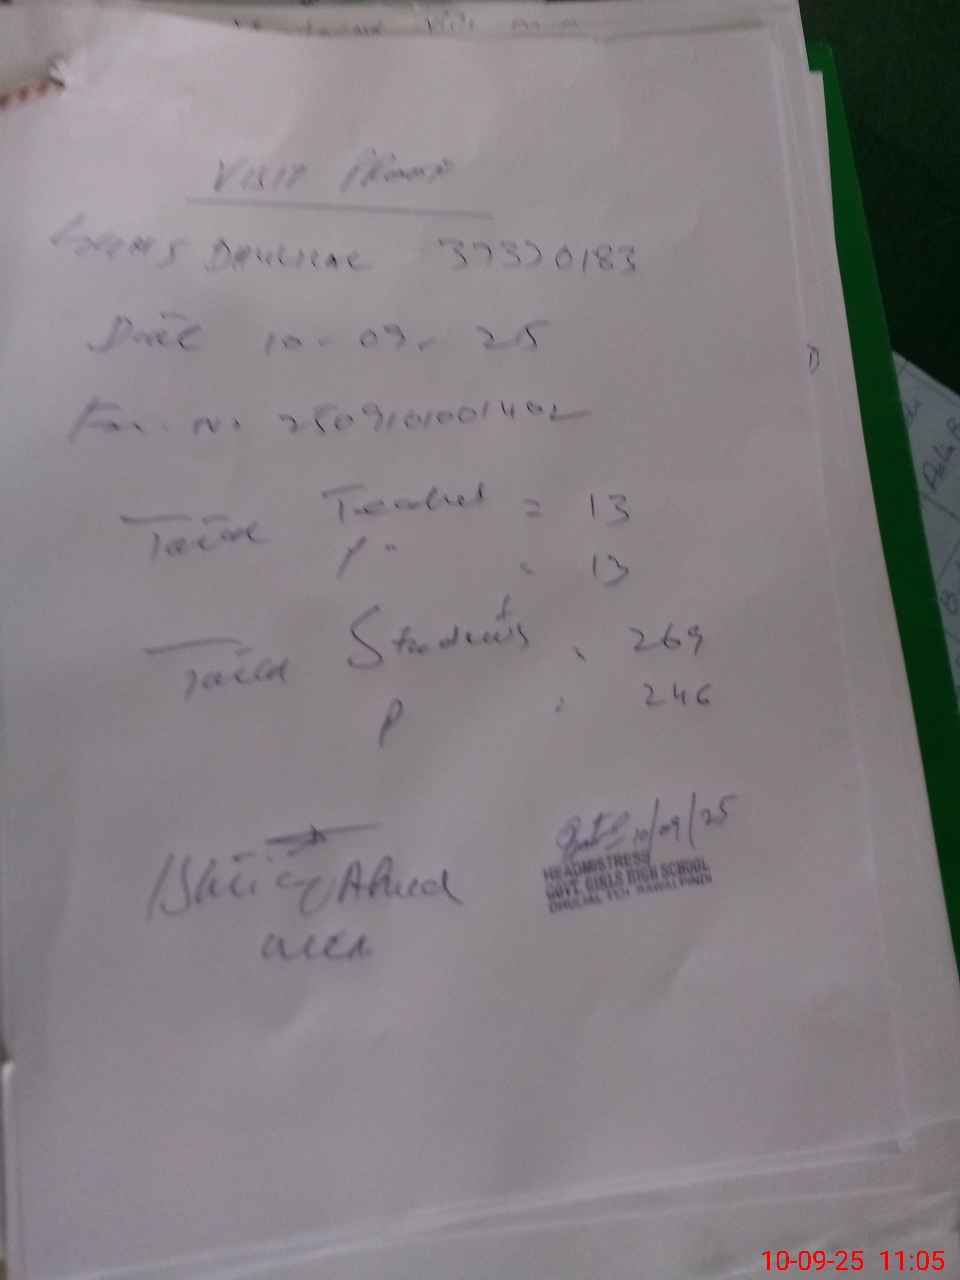 VISIT PROOF
GGHS DHULIAL 37320183
Date 10-09-25
No 2509101001402
Total Teachers = 13
P " = 13
Total Students = 269
P = 246
Ahmed
10/09/25
HEADMISTRESS
GOVT. GIRLS HIGH SCHOOL
DHULIAL TEH. RAWALPINDI
10-09-25 11:05